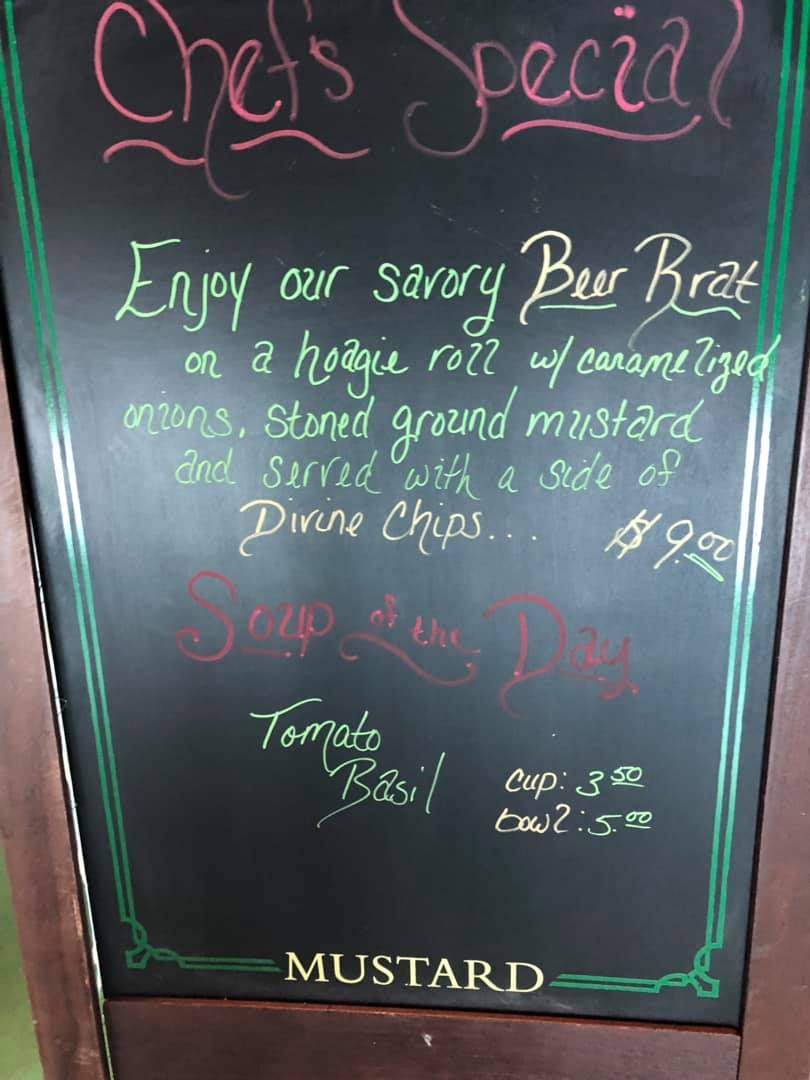 Chef's Special
Enjoy our savory Beer Brat
on a hoagie roll w/ caramelized
onions, stoned ground mustard
and served with a side of
Divine Chips... $9.00
Soup of the Day
Tomato
Basil
cup: 3 50
bowl: 5.00
MUSTARD